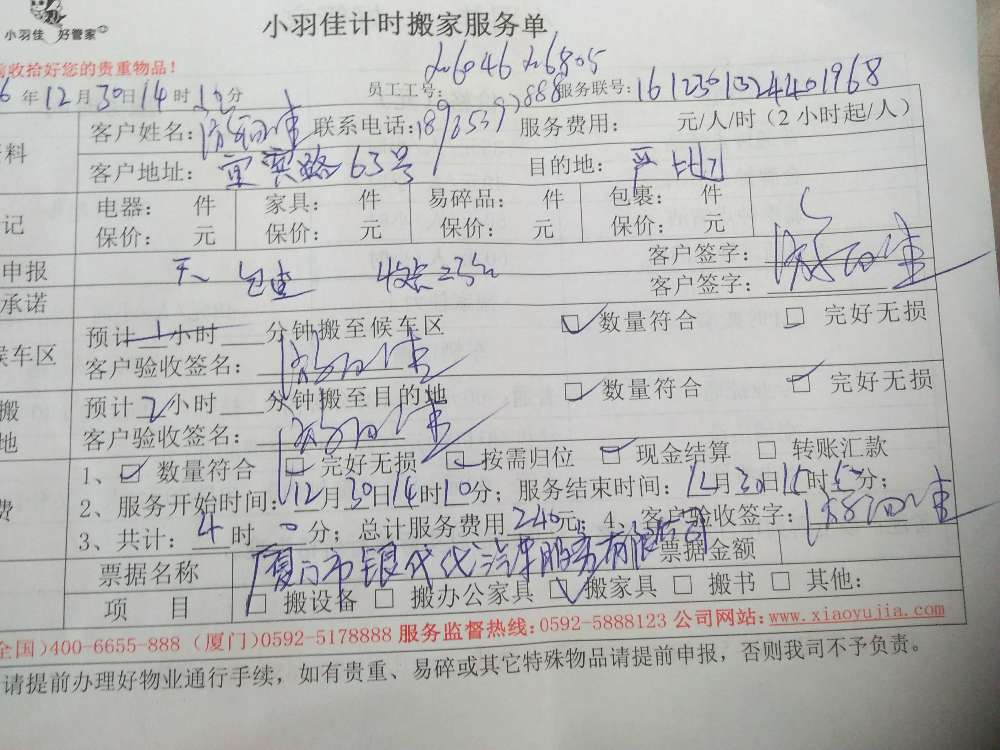 小羽佳计时搬家服务单
小羽佳 好管家
收拾好您的贵重物品！
员工工号： 26046 26805
6年12月30日14时10分 服务联号：1612301324401968
客户姓名： 联系电话： 服务费用： 元/人/时（2小时起/人）
料
客户地址：宜宾路63号 目的地：
电器： 件 家具： 件 易碎品： 件 包裹： 件
记
保价： 元 保价： 元 保价： 元 保价： 元
申报 客户签字：
承诺 客户签字：
预计1小时 分钟搬至候车区 ☑ 数量符合 □ 完好无损
候车区
客户验收签名：
搬 预计2小时 分钟搬至目的地 ☑ 数量符合 ☑ 完好无损
地 客户验收签名：
1、☑ 数量符合 ☑ 完好无损 ☑ 按需归位 ☑ 现金结算 □ 转账汇款
2、服务开始时间：12月30日14时10分；服务结束时间：12月30日 时 分；
费
3、共计：4时0分；总计服务费用240元；4、客户验收签字：
票据名称 厦门市银代代汽车服务有限公司 票据金额
项 目 □ 搬设备 □ 搬办公家具 ☑ 搬家具 □ 搬书 □ 其他：
全国)400-6655-888 (厦门)0592-5178888 服务监督热线：0592-5888123 公司网站：www.xiaoyujia.com
请提前办理好物业通行手续，如有贵重、易碎或其它特殊物品请提前申报，否则我司不予负责。